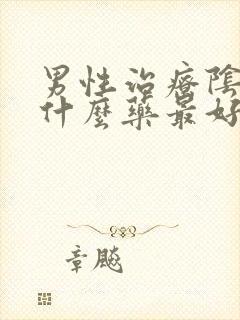 男性治療陰
什麼藥最好
章飈